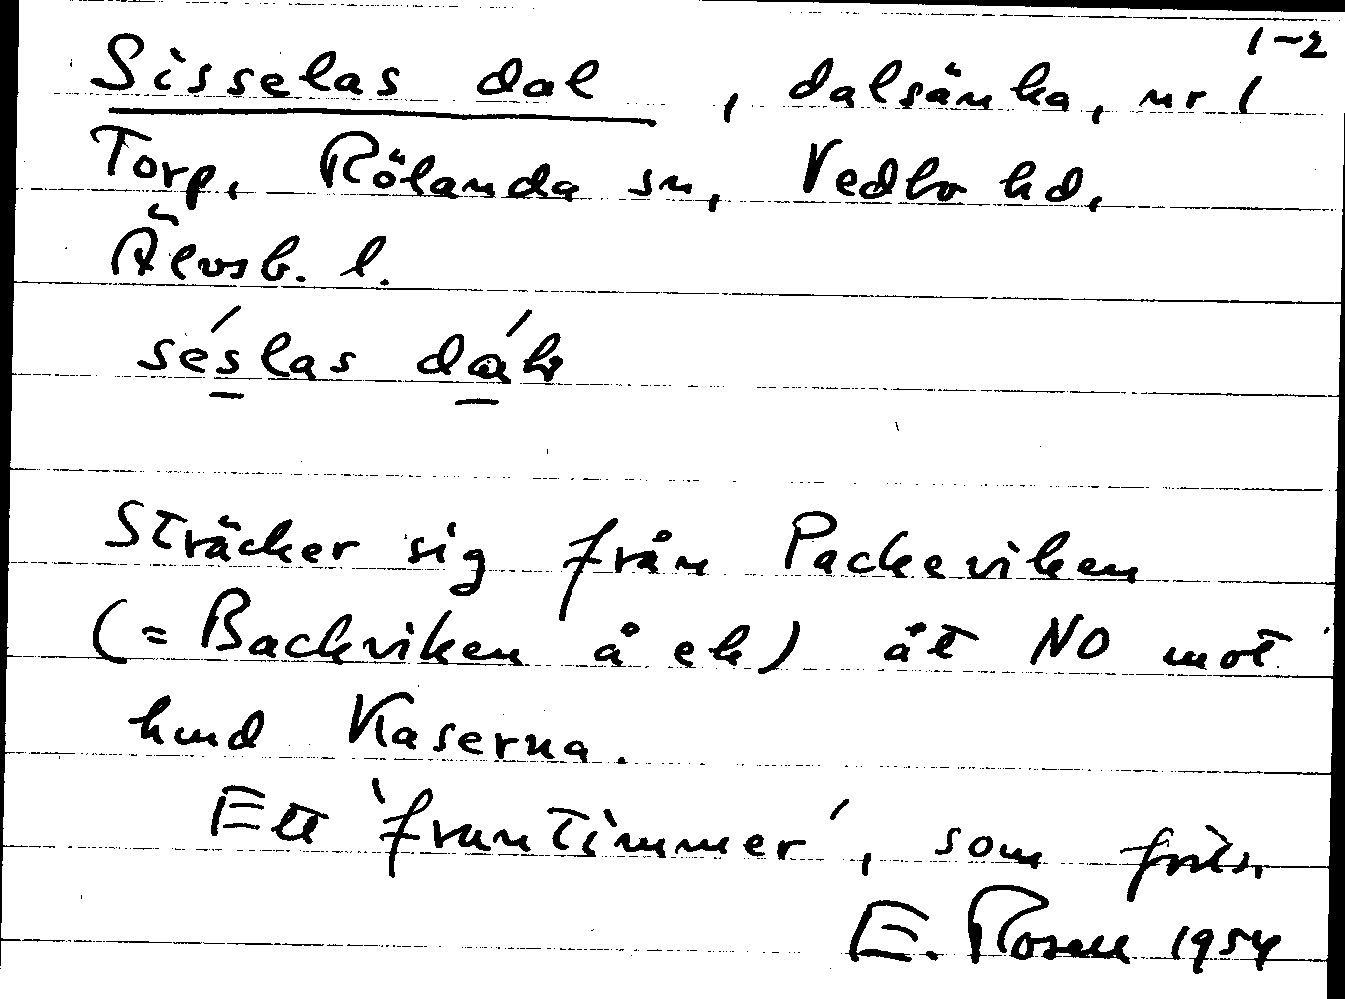 1-2
Sisselas dal, dalsänka, nr 1
Torp, Rölanda sn, Vedbo hd,
Älvsb. l.
séslas
Sträcker sig från Packeviken
(= Backviken å ek) åt NO mot
Kaserna.
Ett 'fruntimmer', som
E. Rosell 1954